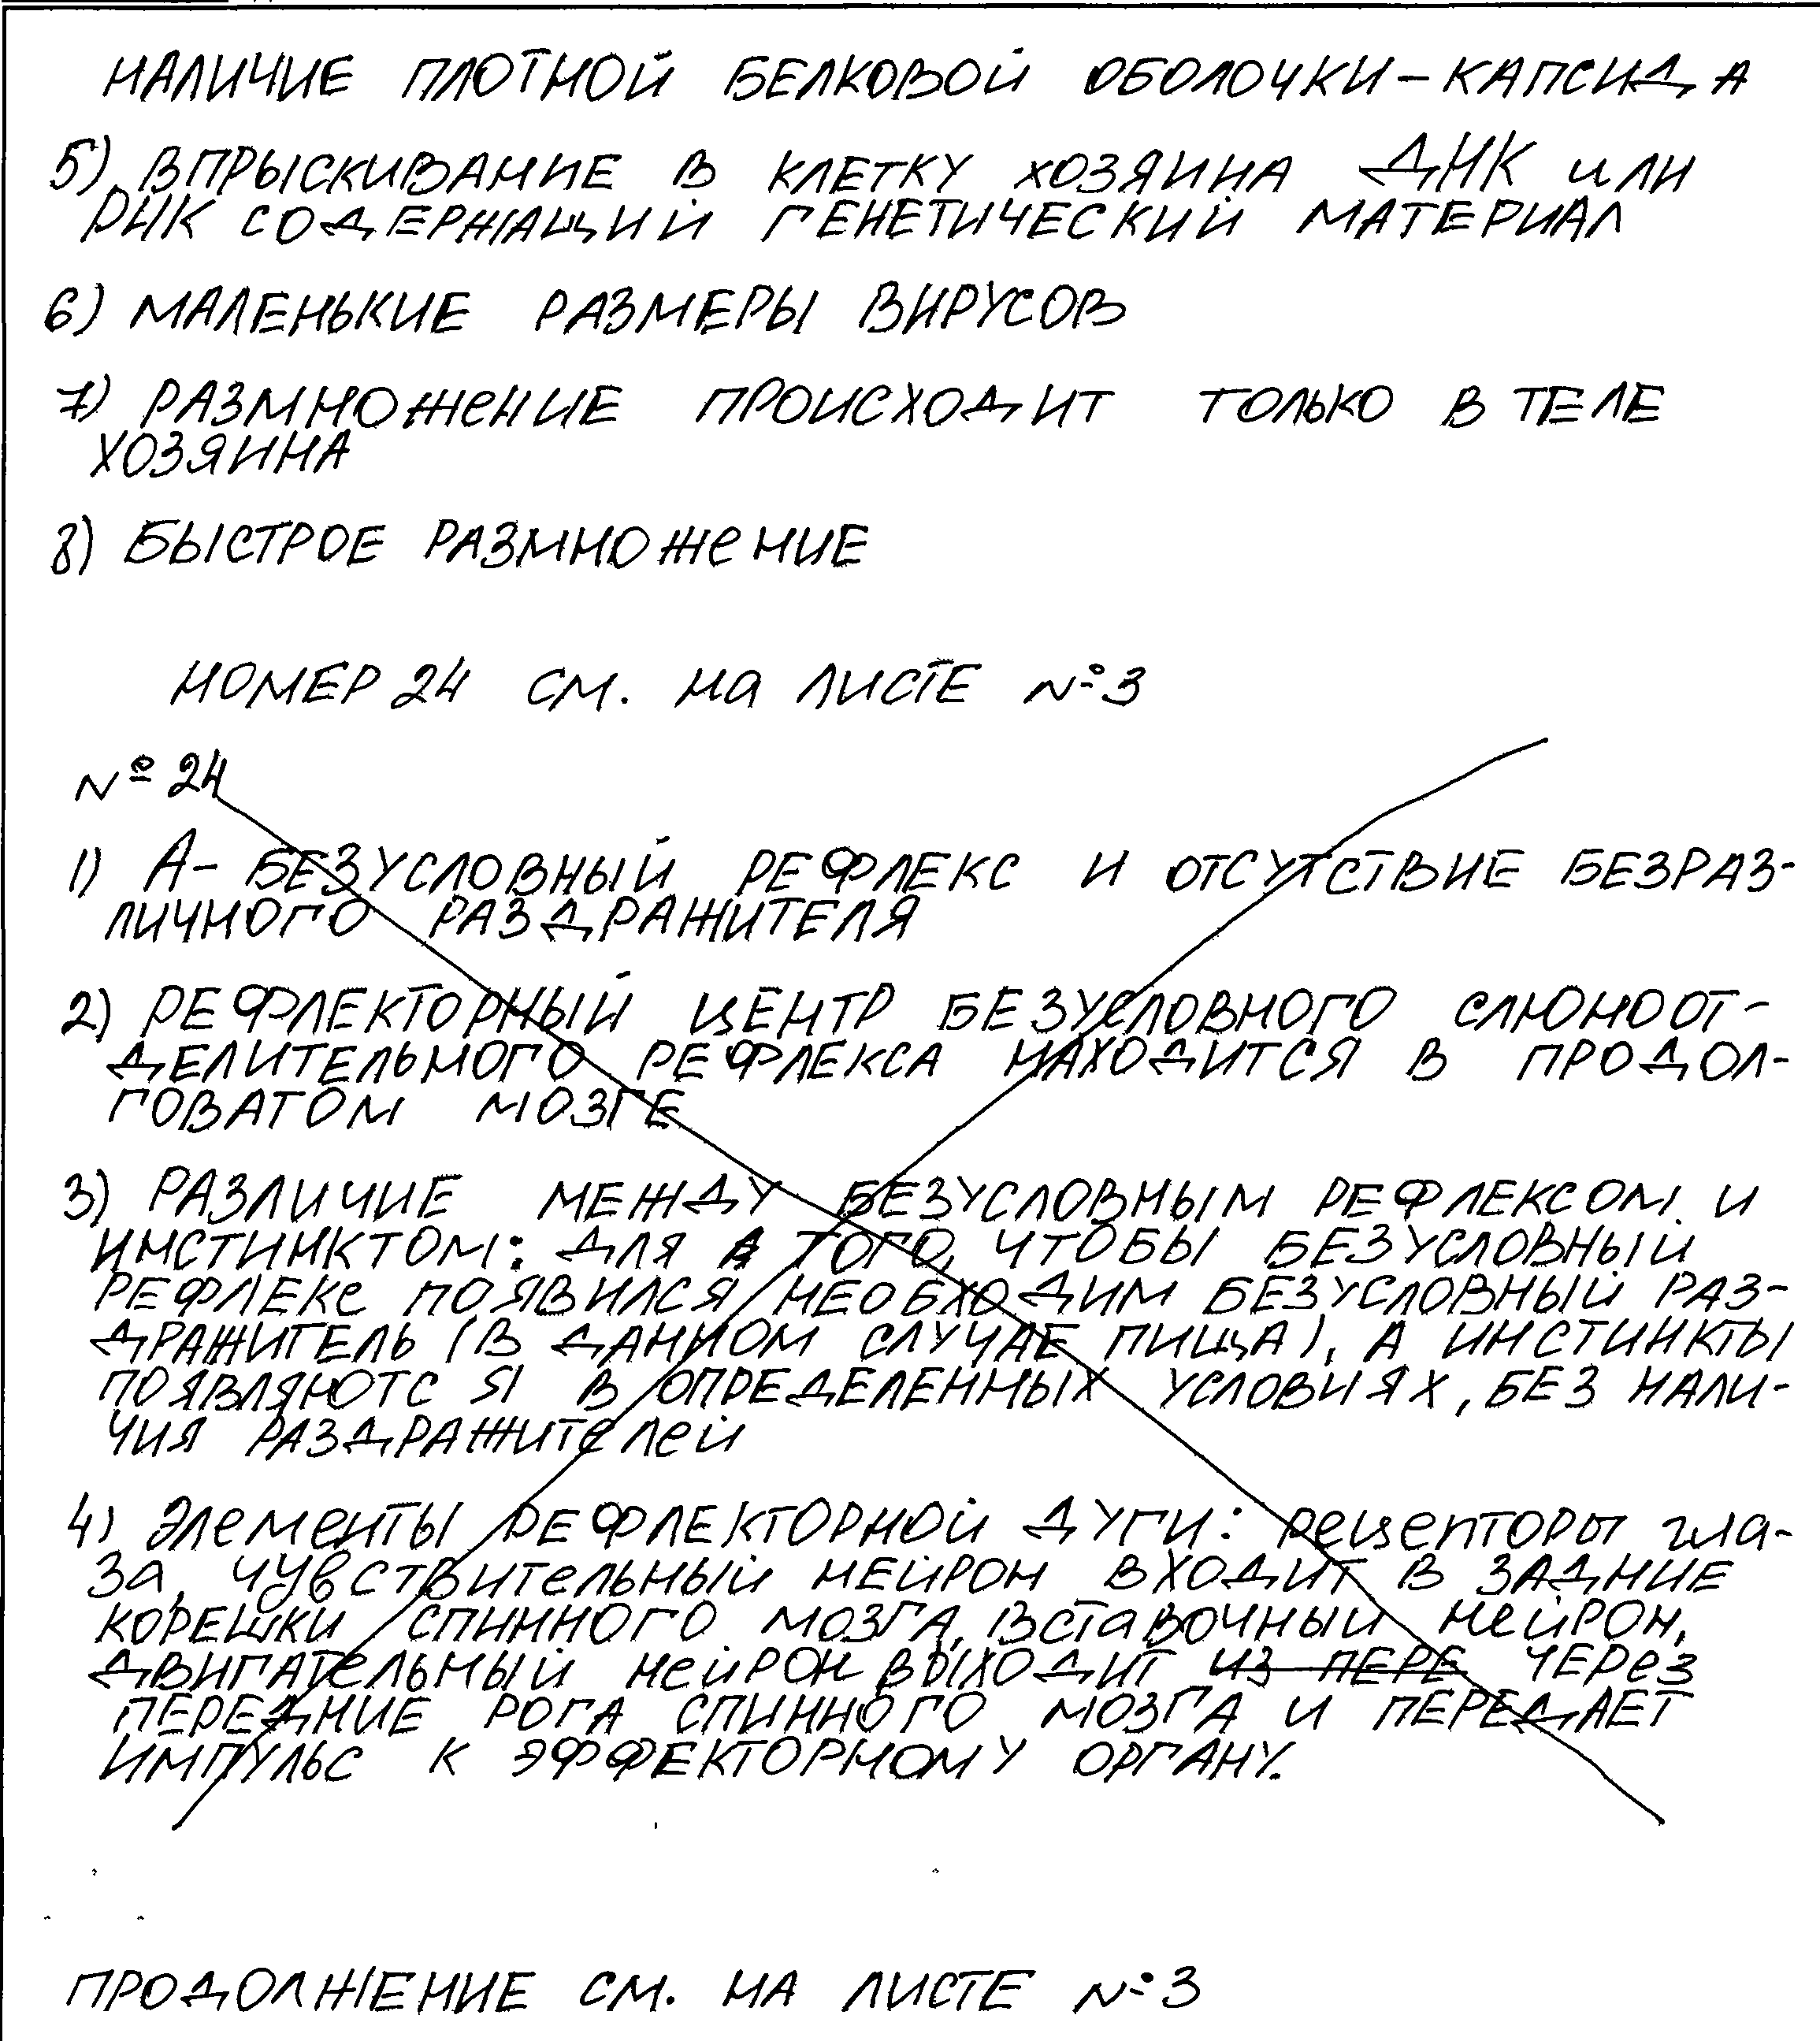 НАЛИЧИЕ ПЛОТНОЙ БЕЛКОВОЙ ОБОЛОЧКИ – КАПСИДА
5) ВПРЫСКИВАНИЕ В КЛЕТКУ ХОЗЯИНА ДНК ИЛИ
РНК СОДЕРЖАЩИЙ ГЕНЕТИЧЕСКИЙ МАТЕРИАЛ
6) МАЛЕНЬКИЕ РАЗМЕРЫ ВИРУСОВ
7) РАЗМНОЖЕНИЕ ПРОИСХОДИТ ТОЛЬКО В ТЕЛЕ
ХОЗЯИНА
8) БЫСТРОЕ РАЗМНОЖЕНИЕ
НОМЕР 24 СМ. НА ЛИСТЕ №3
№ 24
1) А - БЕЗУСЛОВНЫЙ РЕФЛЕКС И ОТСУТСТВИЕ БЕЗРАЗ-
ЛИЧНОГО РАЗДРАЖИТЕЛЯ
2) РЕФЛЕКТОРНЫЙ ЦЕНТР БЕЗУСЛОВНОГО СЛЮНООТ-
ДЕЛИТЕЛЬНОГО РЕФЛЕКСА НАХОДИТСЯ В ПРОДОЛ-
ГОВАТОМ МОЗГЕ
3) РАЗЛИЧИЕ МЕЖДУ БЕЗУСЛОВНЫМ РЕФЛЕКСОМ И
ИНСТИНКТОМ: ДЛЯ ТОГО, ЧТОБЫ БЕЗУСЛОВНЫЙ
РЕФЛЕКС ПОЯВИЛСЯ НЕОБХОДИМ БЕЗУСЛОВНЫЙ РАЗ-
ДРАЖИТЕЛЬ (В ДАННОМ СЛУЧАЕ ПИЩА), А ИНСТИНКТЫ
ПОЯВЛЯЮТСЯ В ОПРЕДЕЛЕННЫХ УСЛОВИЯХ, БЕЗ НАЛИ-
ЧИЯ РАЗДРАЖИТЕЛЕЙ
4) ЭЛЕМЕНТЫ РЕФЛЕКТОРНОЙ ДУГИ: РЕЦЕПТОРЫ ГЛА-
ЗА, ЧУВСТВИТЕЛЬНЫЙ НЕЙРОН ВХОДИТ В ЗАДНИЕ
КОРЕШКИ СПИННОГО МОЗГА, ВСТАВОЧНЫЙ НЕЙРОН,
ДВИГАТЕЛЬНЫЙ НЕЙРОН ВЫХОДИТ ИЗ ПЕРЕ ЧЕРЕЗ
ПЕРЕДНИЕ РОГА СПИННОГО МОЗГА И ПЕРЕДАЕТ
ИМПУЛЬС К ЭФФЕКТОРНОМУ ОРГАНУ.
ПРОДОЛЖЕНИЕ СМ. НА ЛИСТЕ №3